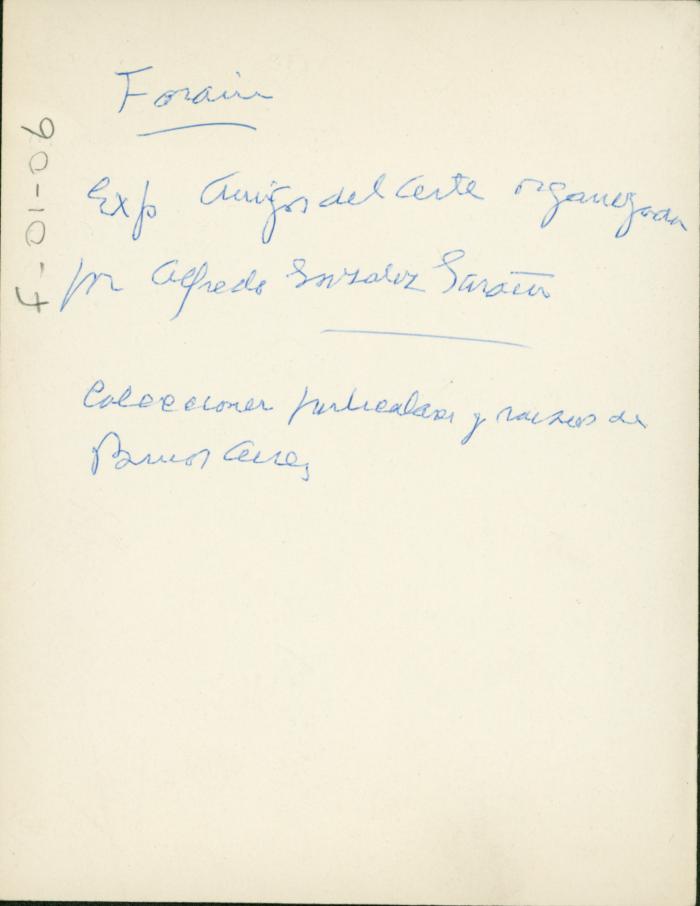 Forain
Exp Amigos del Arte organizada
por Alfredo González Garaño
Colecciones particulares y museos de
Buenos Aires
F-01-06